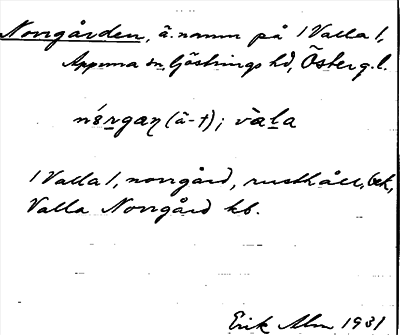 Norrgården, ä. namn på 1 Valla 1,
Appuna sn, Göstrings hd, Östergl.
1 Valla 1, norrgård, rusthåll, bek,
Valla Norrgård kb.
Erik Alm 1931